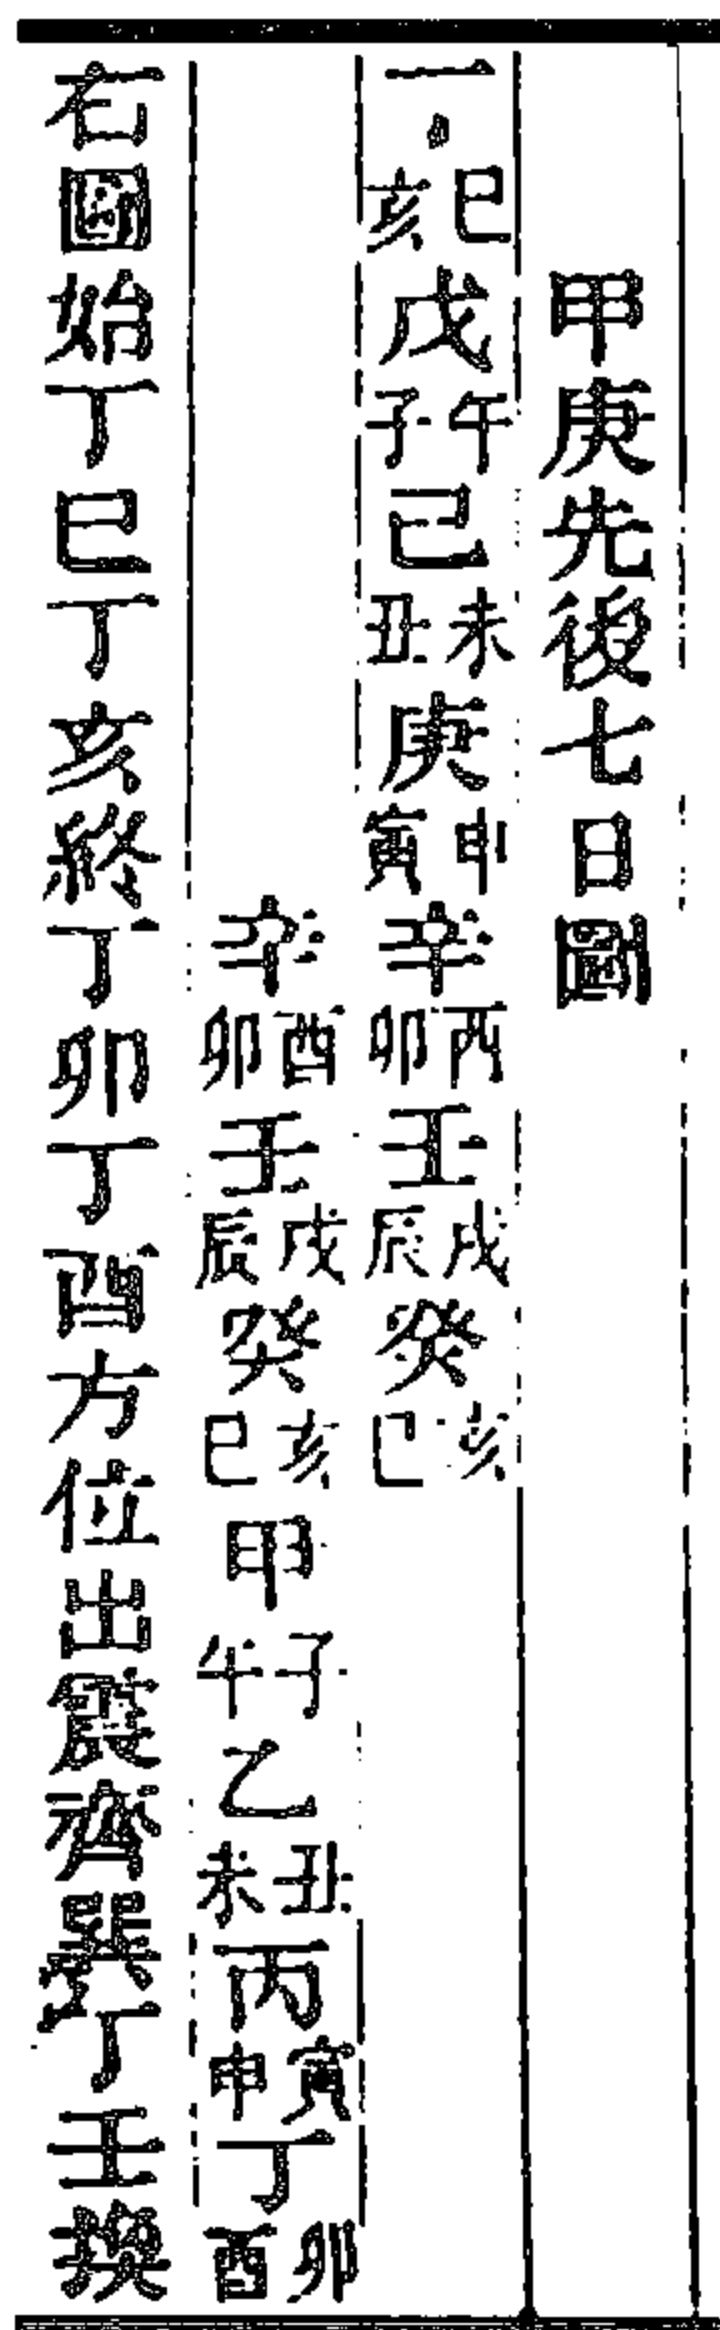 甲庚先後七日圖
丁巳亥戊午子己未丑庚申寅辛酉卯壬戌辰癸亥巳
辛酉卯壬戌辰癸亥巳甲子午乙丑未丙寅申丁卯酉
右圖始丁巳丁亥終丁卯丁酉方位出震齊巽丁壬換